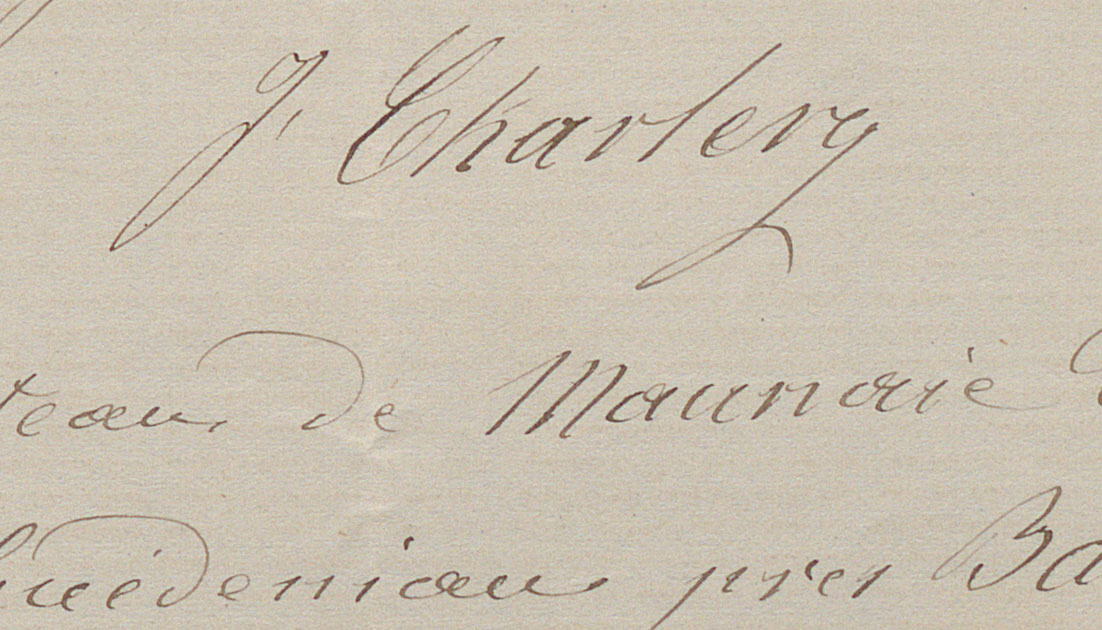 J. Charlery
teau, de Maunoir
uédeniau près Ba